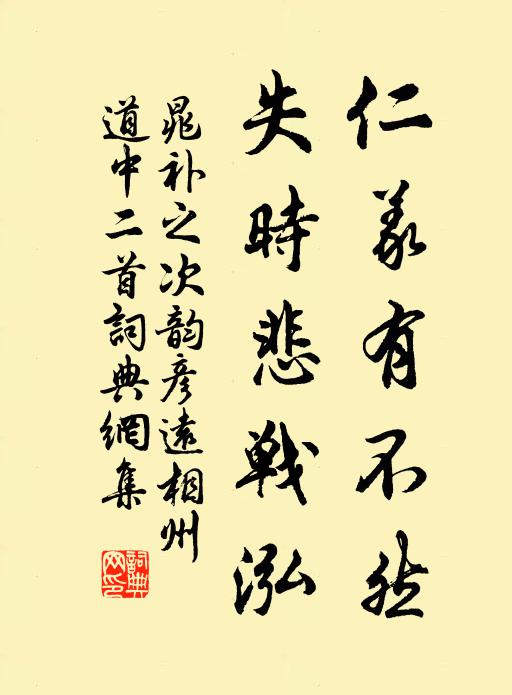 仁義有不然
失時悲戰泓
晁補之次韵彥遠相州
道中二首詞典網集
詞典
网印